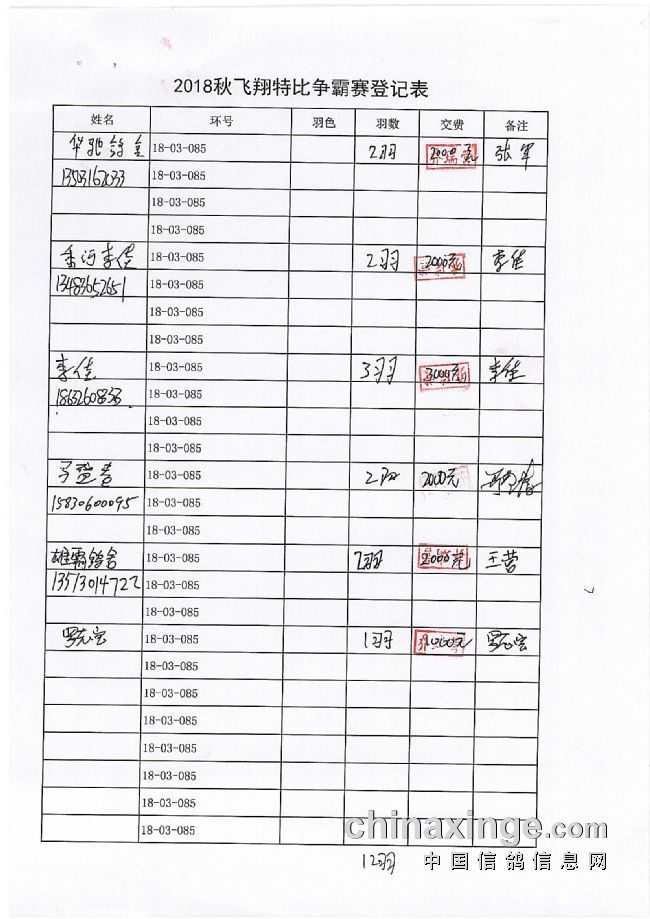 2018秋飞翔特比争霸赛登记表
姓名 环号 羽色 羽数 交费 备注
18-03-085 2羽 2000元 张军
18-03-085
18-03-085
18-03-085
香河李佳 18-03-085 2羽 2000元 李佳
13483652651 18-03-085
18-03-085
18-03-085
李佳 18-03-085 3羽 3000元 李佳
18-03-085
18-03-085
18-03-085
18-03-085 2羽 2000元
15830600095 18-03-085
18-03-085
雄霸鸽舍 18-03-085 2羽 2000元 王营
13513014722 18-03-085
18-03-085
罗志宏 18-03-085 1羽 1000元 罗志宏
18-03-085
18-03-085
18-03-085
18-03-085
18-03-085
18-03-085
18-03-085
chinaxinge.com
12羽 中国信鸽信息网